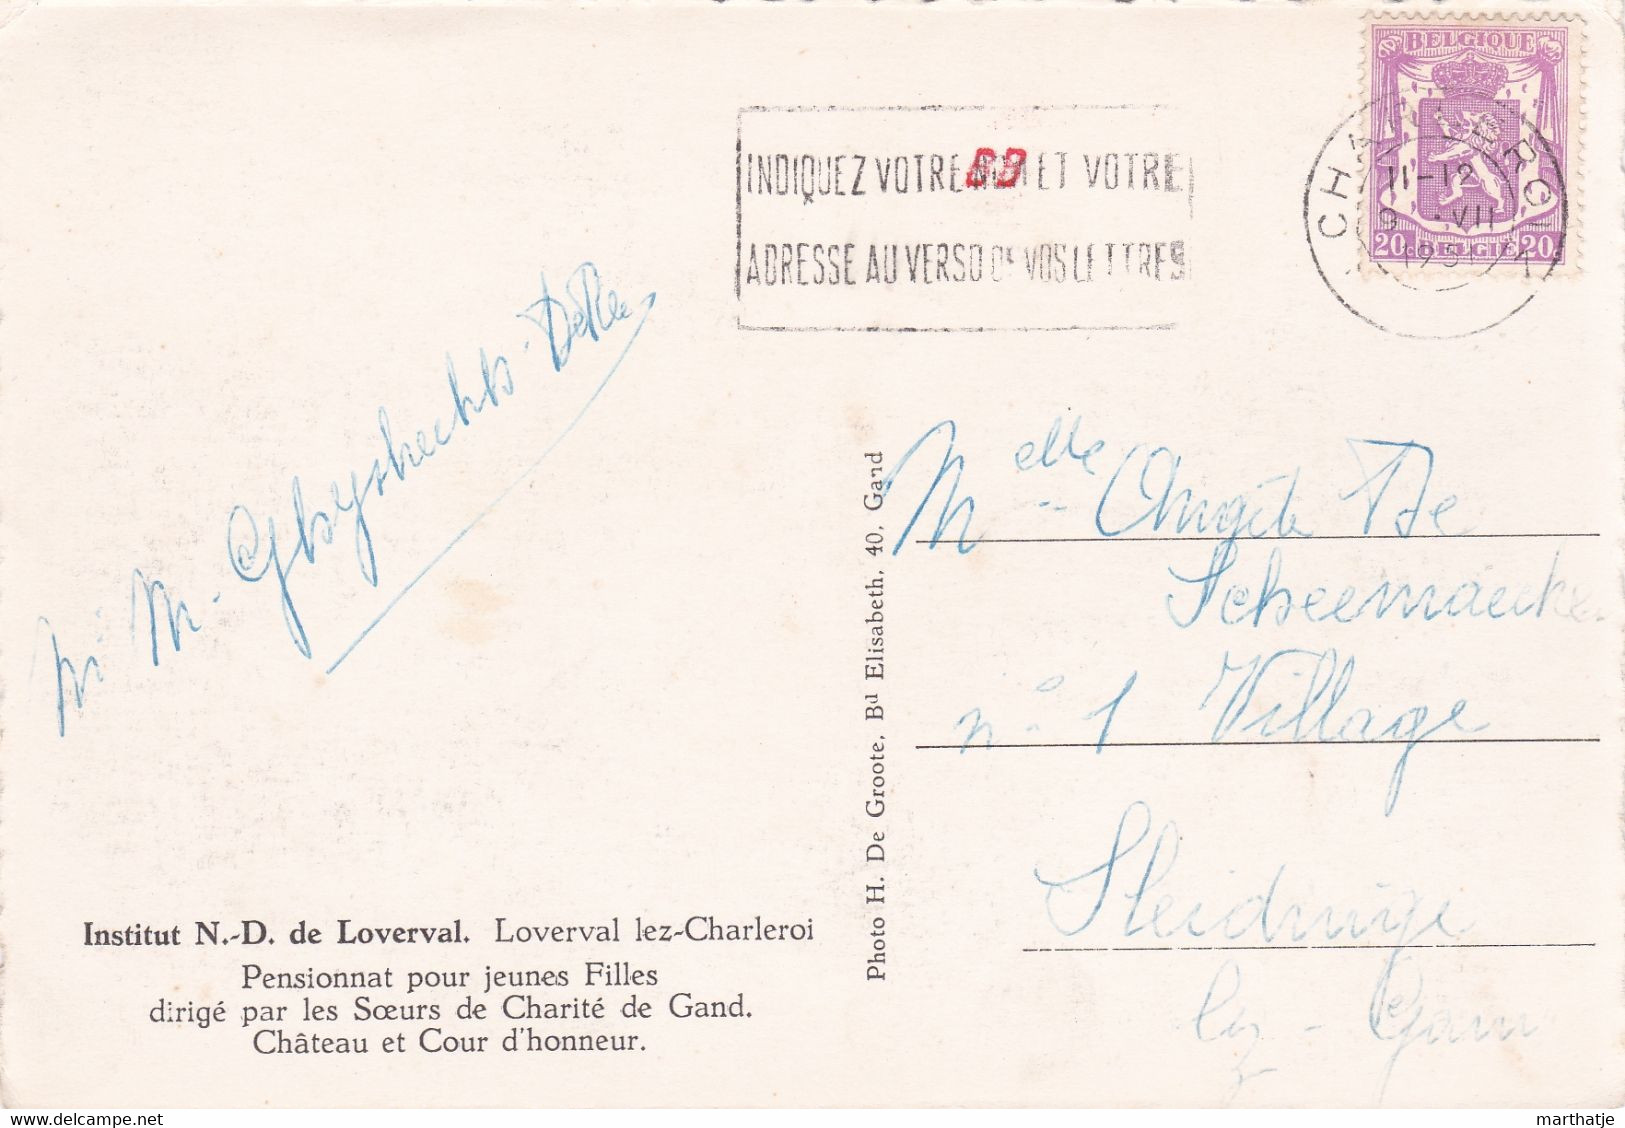 BELGIQUE
20 BELGIE 20
CHARLEROI
11-12
VII
1951
INDIQUEZ VOTRE NOM ET VOTRE
ADRESSE AU VERSO DE VOS LETTRES
M. Ghyshechts-
Melle De
Scheemaecker
n° 1 Village
Sleidinge
lez-Gand
Photo H. De Groote, Bd Elisabeth, 40, Gand
Institut N.-D. de Loverval. Loverval lez-Charleroi
Pensionnat pour jeunes Filles
dirigé par les Sœurs de Charité de Gand.
Château et Cour d'honneur.
www.delcampe.net
marthatje